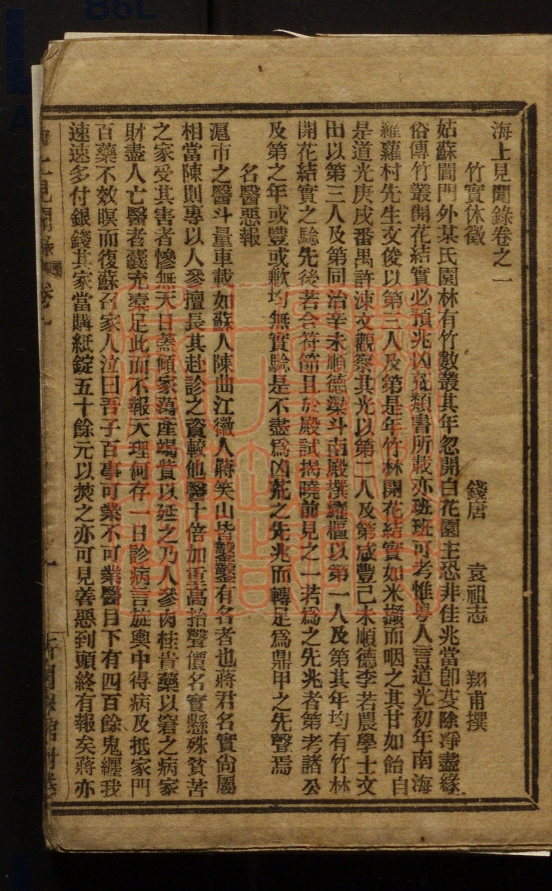 海上見聞錄卷之一
錢唐 袁祖志 翔甫撰
竹實休徵
姑蘇閶門外某氏園林有竹數叢其年忽開白花園主恐非佳兆當卽芟除凈盡緣
俗傳竹叢開花結實必預兆凶荒類書所載亦班班可考惟粵人言道光初年南海
羅蘿村先生文俊以第三人及第是年竹林開花結實如米擷而咽之其甘如飴自
是道光庚戌番禺許涑文觀察其光以第二人及第咸豐己未順德李若農學士文
田以第三人及第同治辛未順德梁斗南殿撰耀樞以第一人及第其年均有竹林
開花結實之驗先後若合符節且於殿試揭曉前見之一若爲之先兆者第考諸公
及第之年或豐或歉均無實驗是不盡爲凶荒之先兆而轉足爲鼎甲之先聲焉
名醫惡報
滬市之醫斗量車載如蘇人陳曲江徽人蔣笑山皆鑿鑿有名者也蔣君名實尙屬
相當陳則專以人參擅長其赴診之資較他醫十倍加重高抬聲價名實懸殊貧苦
之家受其害者慘無天日蓋傾家蕩產竭貲以延之乃人參肉桂貴藥以窘之病家
財盡人亡醫者囊充橐足此而不報天理何存一日診病言旋輿中得病及抵家門
百藥不效瞑而復蘇召家人泣曰吾子百事可業不可業醫目下有四百餘鬼纏我
速速多付銀錢其家當購紙錠五十餘元以焚之亦可見善惡到頭終有報矣蔣亦
上見聞錄 卷一
一